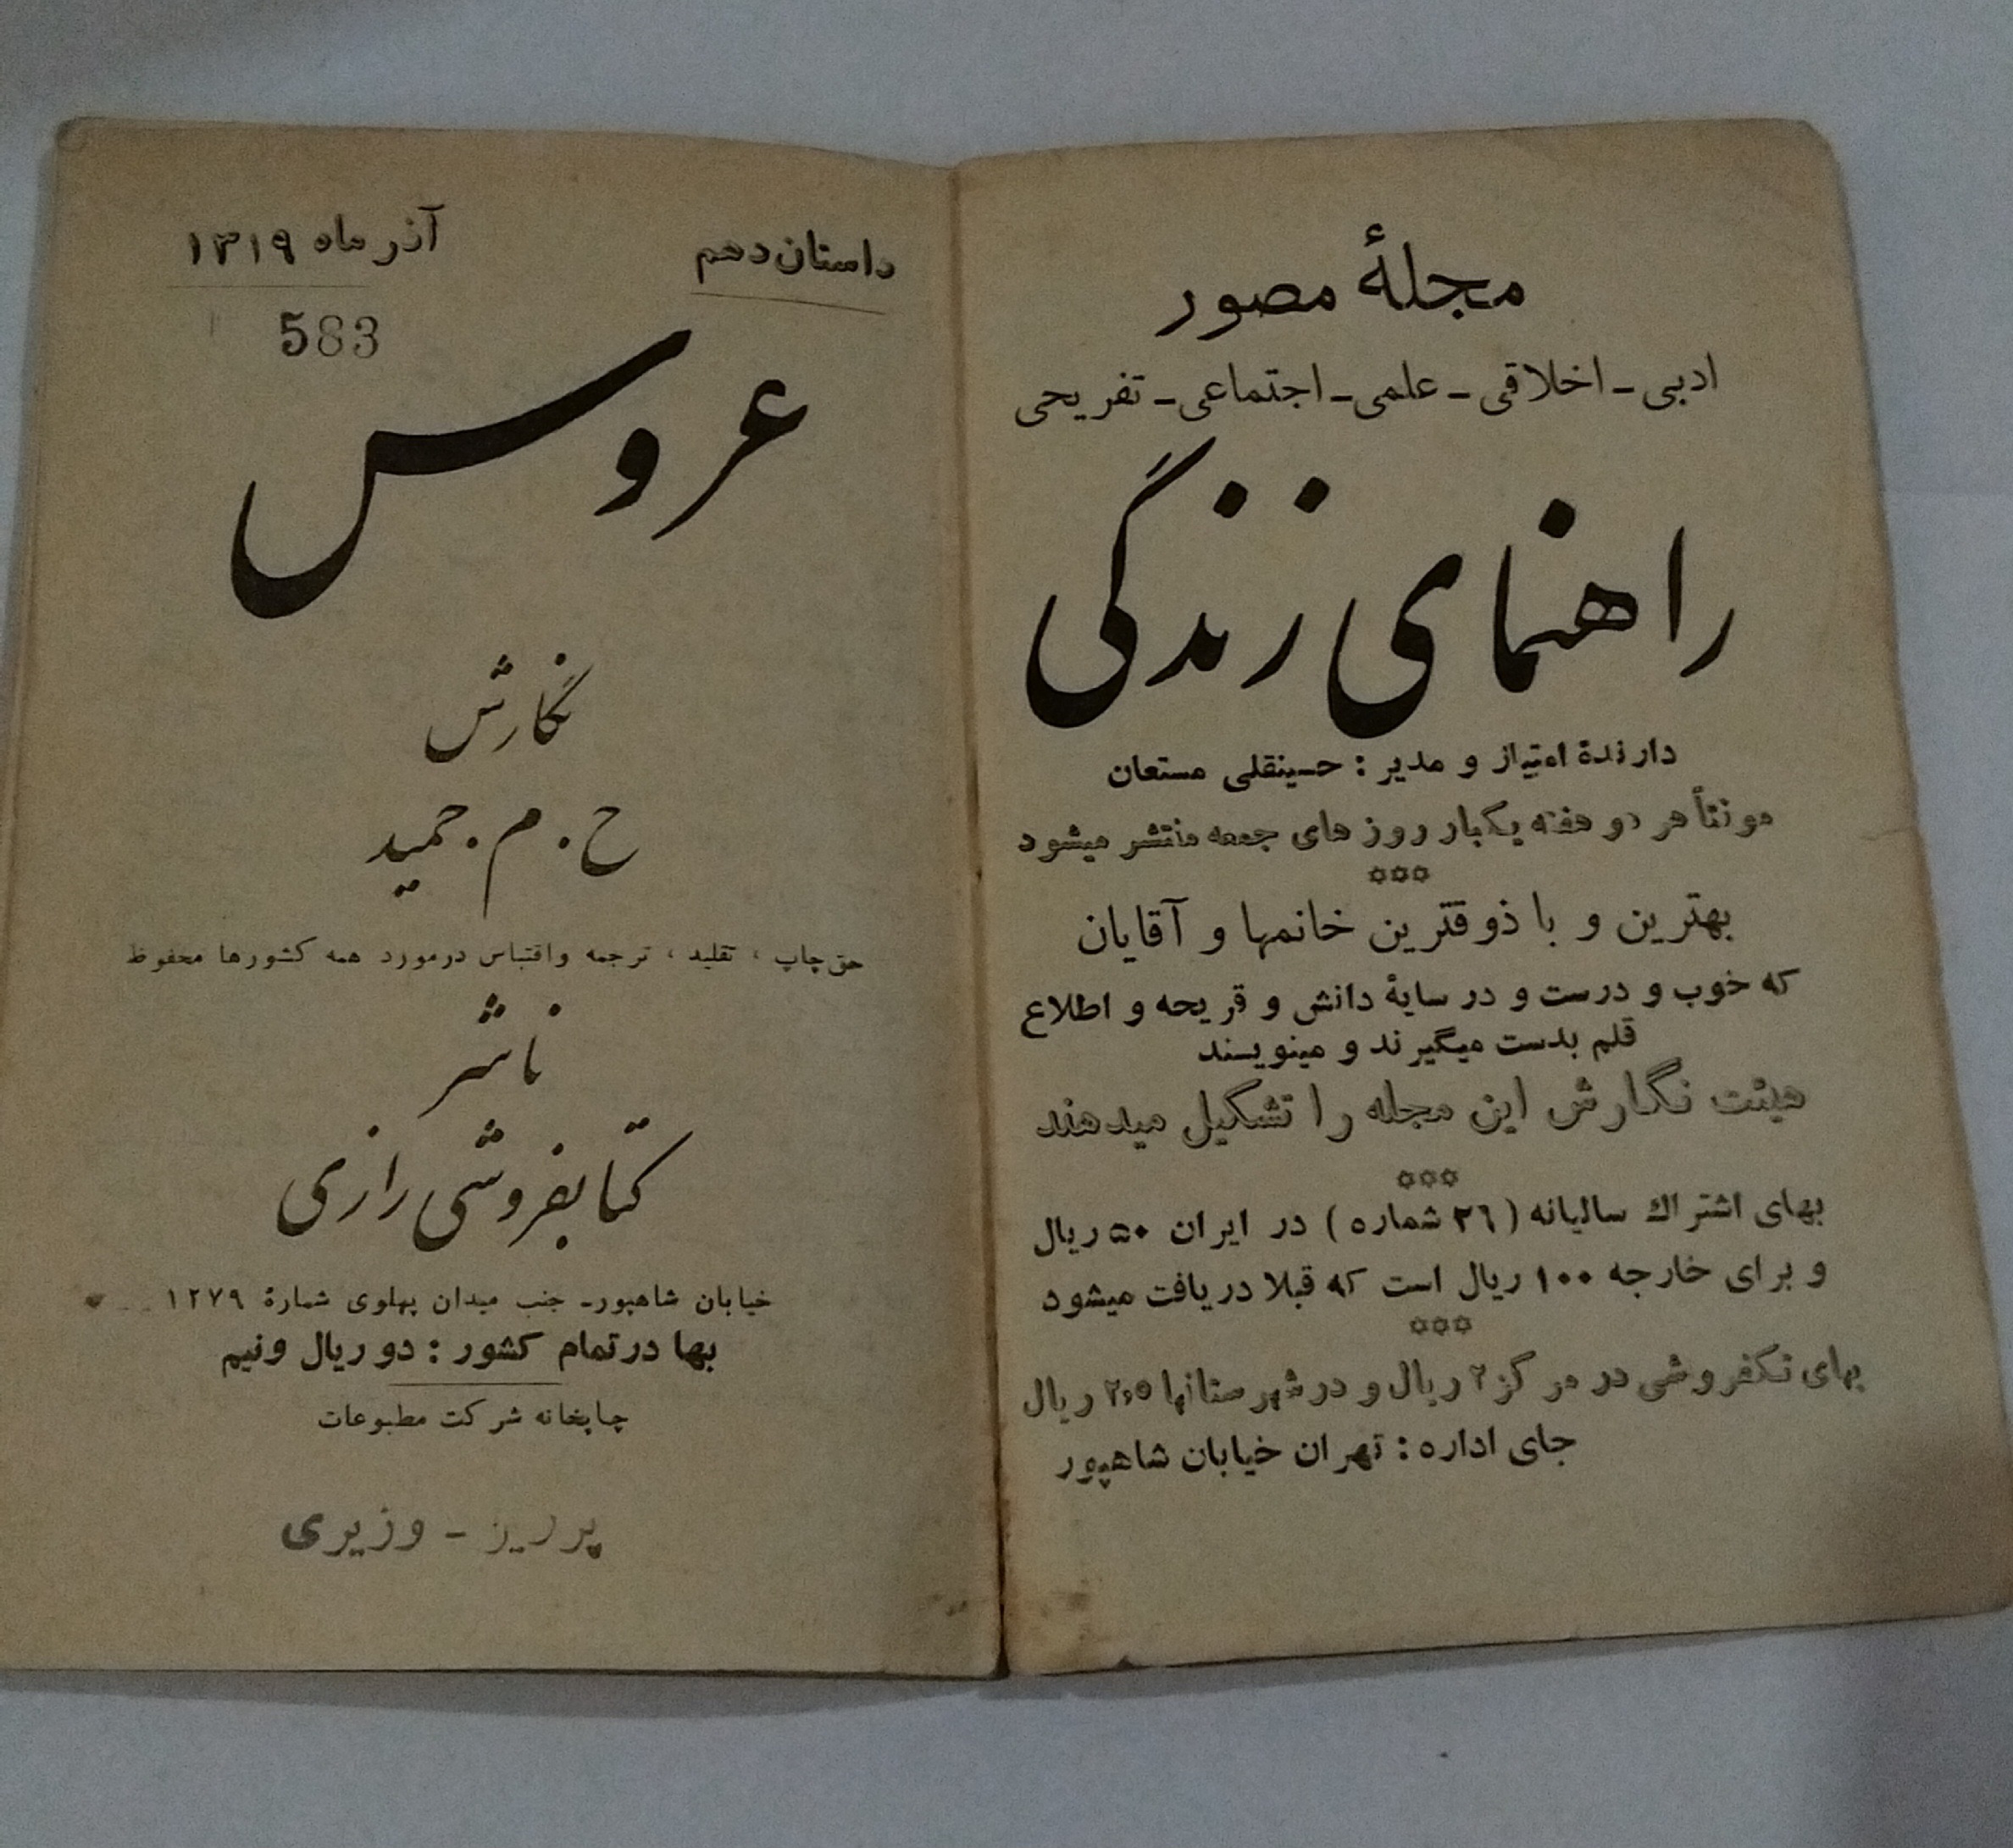 مجلهٔ مصور
ادبی ـ اخلاقی ـ علمی ـ اجتماعی ـ تفریحی
راهنمای زندگی
دارندهٔ امتیاز و مدیر : حسینقلی مستعان
موقتاً هر دو هفته یکبار روز های جمعه منتشر میشود
بهترین و با ذوقترین خانمها و آقایان
که خوب و درست و در سایهٔ دانش و قریحه و اطلاع
قلم بدست میگیرند و مینویسند
هیئت نگارش این مجله را تشکیل میدهند
بهای اشتراك سالیانه (۲٦ شماره) در ایران ۵۰ ریال
و برای خارجه ۱۰۰ ریال است که قبلا دریافت میشود
بهای تکفروشی در مرکز ۲ ریال و در شهرستانها ۲٫۵ ریال
جای اداره : تهران خیابان شاهپور
داستان دهم
آذر ماه ۱۳۱۹
583
عروس
نگارش
ح . م . حمید
حق چاپ ، تقلید ، ترجمه واقتباس درمورد همه کشورها محفوظ
ناشر
کتابفروشی رازی
خیابان شاهپور ـ جنب میدان پهلوی شمارهٔ ۱۲۷۹
بها در تمام کشور : دو ریال ونیم
چاپخانه شرکت مطبوعات
ـ وزیری